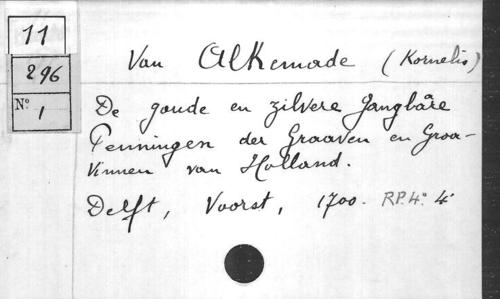 11
296
N° 1
Van Alkemade (Kornelis)
De goude en zilvere gangbare
Penningen der Graaven en Graa-
vinnen van Holland.
Delft, Voorst, 1700. RP.4° 4°